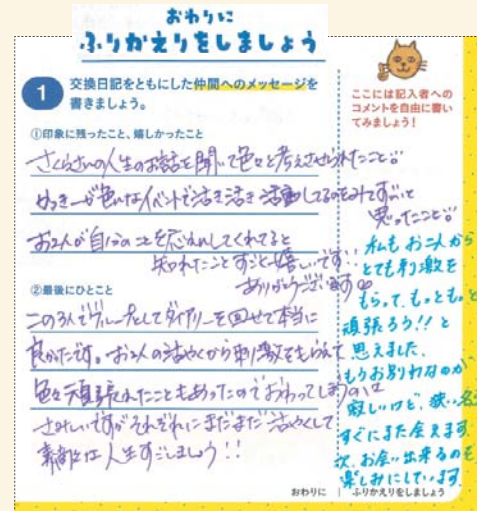 おわりに
ふりかえりをしましょう
1
交換日記をともにした仲間へのメッセージを
書きましょう。
ここには記入者への
コメントを自由に書い
てみましょう！
①印象に残ったこと、嬉しかったこと
さくらさんの人生のお話を聞いて色々と考えさせられたこと。
色々なイベントで活き活き活動してるのをみてすごいと
思ったこと
お2人が自分のことを応れしてくれてると
知れたことすごく嬉しいです！！
ありがとうございます
②最後にひとこと
この3人でグループとしてダイアリーを回せて本当に
良かったです。お2人の活やくから刺激をもらえて
色々頑張れたこともあったのでおわってしまうのは
さみしいですがそれぞれにまだまだ活やくして
素敵な人生すごしましょう！！
私もお二人から
とても刺激を
もらって、もっともっと
頑張ろう!!と
思えました。
もうお別れなのが
寂しいけど、狭い
すぐにまた会えます
次、お会い出来るのを
楽しみにしています
おわりに | ふりかえりをしましょう